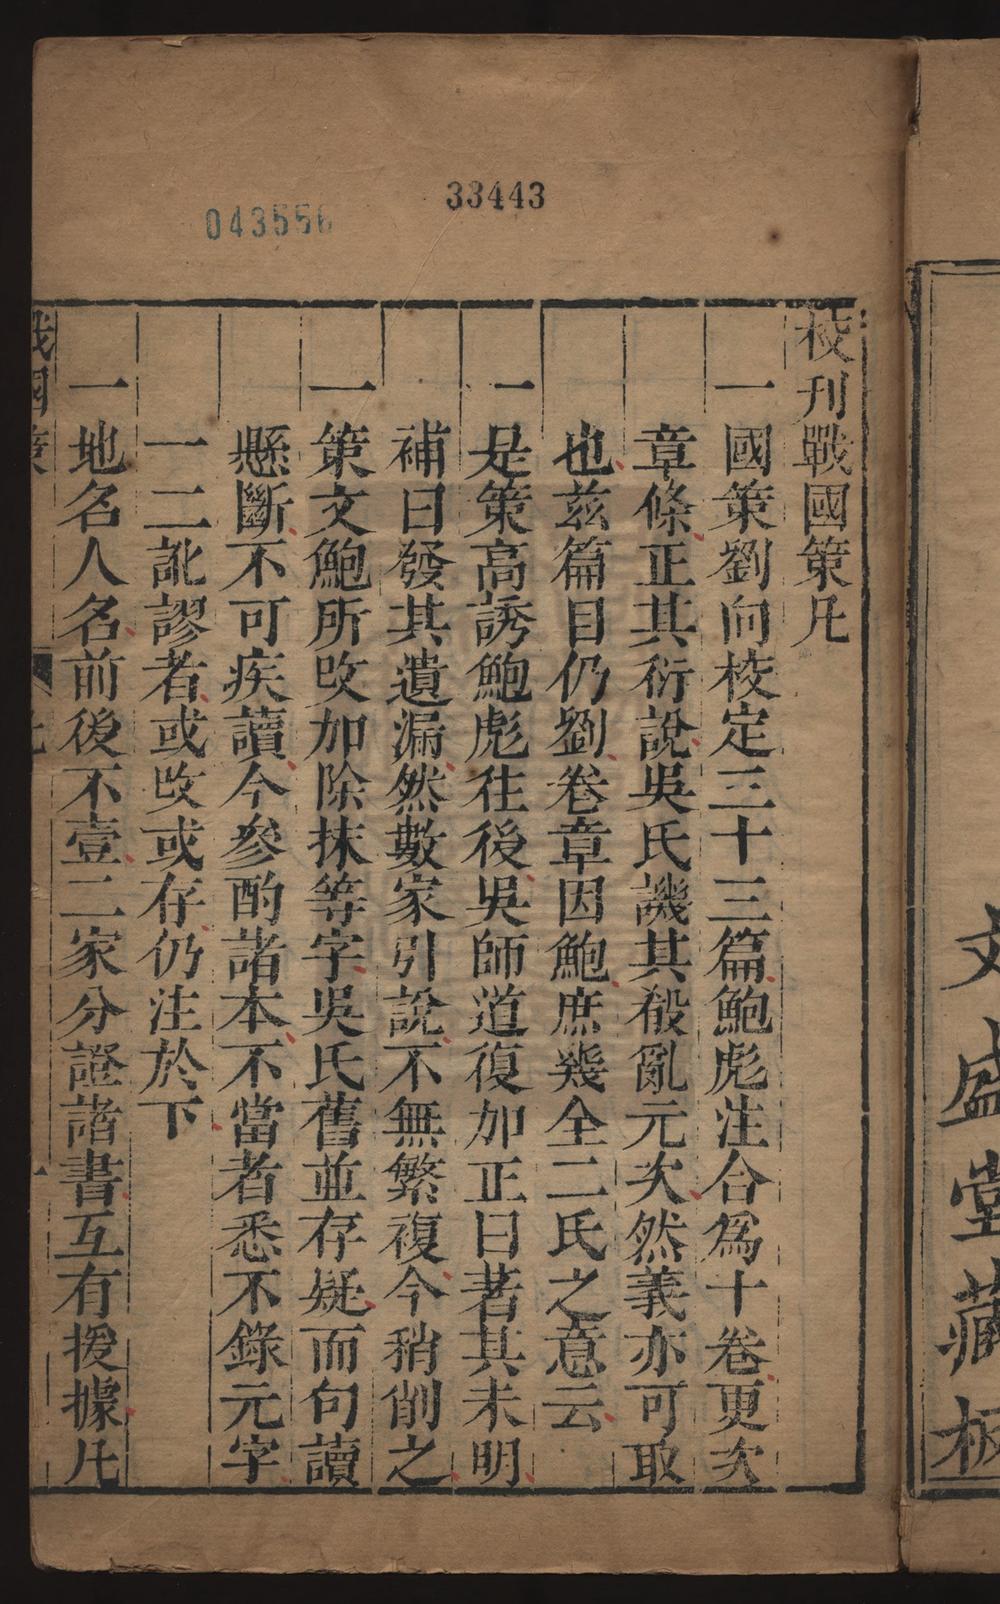 33443
043556
校刊戰國策凡
一國策劉向校定三十三篇鮑彪注合爲十卷更次
章條正其衍說吳氏譏其殽亂元次然義亦可取
也茲篇目仍劉卷章因鮑庶幾全二氏之意云
一是策高誘鮑彪往後吳師道復加正曰著其未明
補曰發其遺漏然數家引說不無繁複今稍削之
一策文鮑所改加除抹等字吳氏舊並存疑而句讀
懸斷不可疾讀今參酌諸本不當者悉不錄元字
一二訛謬者或改或存仍注於下
一地名人名前後不壹二家分證諸書互有援據凡
戰國策
凡
一
文盛堂藏板